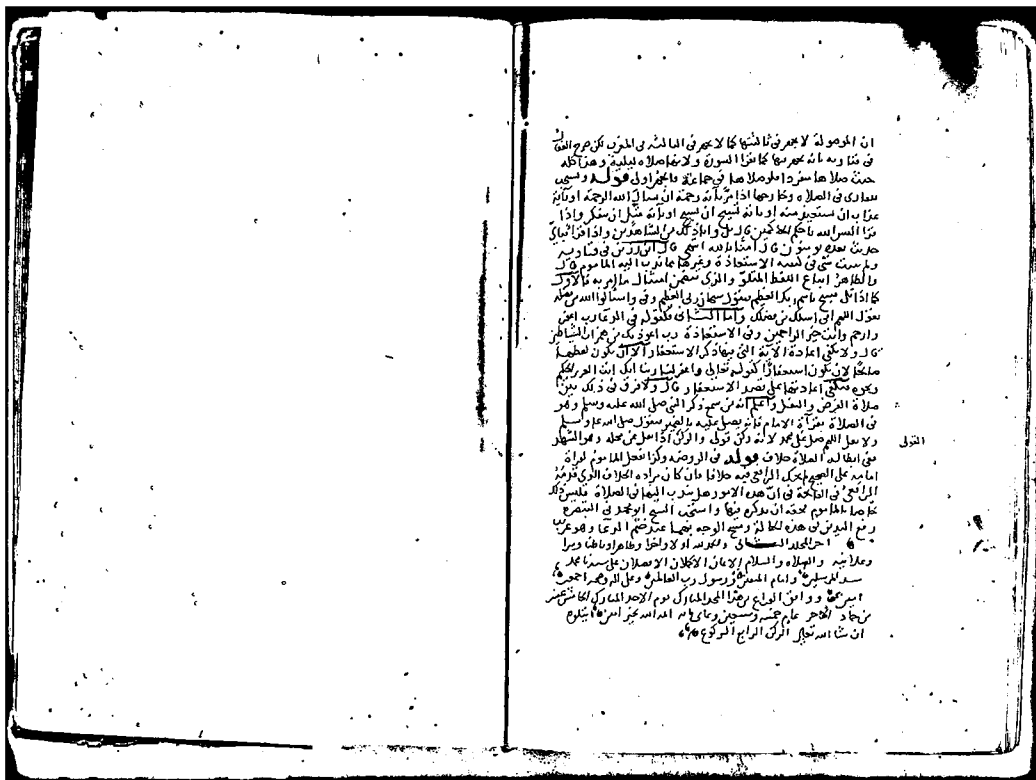 ان الموصولة لا يجهر في ثالثتها كما لا يجهر في الثالثة من المغرب لكن صرح القفال
في فتاويه بانه يجهر بها كما تقرا السورة ولانها صلاه ليلية وهذا كله
حيث صلاها منفردا فلو صلاها في جماعة فالجهر اولى قوله ويستحب
للقارى في الصلاه وخارجها اذا مر باية رحمة ان يسال الله الرحمة او باية
عذاب ان يستعيذ منه او باية تسبيح ان يسبح او باية مثل ان يتفكر واذا
قرا اليس الله باحكم الحاكمين قال بلى وانا على ذلك من الشاهدين واذا قرا فباي
حديث بعده يومنون قال امنا بالله انتهى قال ابن رزين في فتاويه
والظاهر اتباع اللفظ المتلو والذي يتضمن امتثال ما امر به فالاول
كما اذا تلى فسبح باسم ربك العظيم يقول سبحان ربي العظيم وفي واسالوا الله من فضله
يقول اللهم اني اسالك من فضلك واما الثاني فكقوله في الدعا رب اغفر
وارحم وانت خير الراحمين وفي الاستعاذة رب اعوذ بك من همزات الشياطين
قال ولا يكفي اعادة الاية التي فيها ذكر الاستغفار الا ان يكون لفظها
صالحا لان يكون استغفارا كقوله تعالى واغفر لنا ربنا انك انت العزيز الحكيم
ونحوه فيكفي اعادتها على قصد الاستغفار قال ولا فرق في ذلك بين
صلاة الفرض والنفل واعلم انه من سمع ذكر النبي صلى الله عليه وسلم وهو
في الصلاة بقرآة الامام فانه يصلي عليه بالضمير فيقول صلى الله عليه وسلم
ولا يقل اللهم صل على محمد لانه ركن قولي والركن اذا نقل عن محله وهو التشهد
ففي ابطاله الصلاة خلاف قوله في الروضه وكذا يفعل الماموم لقراة
امامه على الصحيح لم يحك الرافعي فيه خلافا فان كان مراده الخلاف الذي قدمه
الرافعي في الفاتحة في ان هذه الامور هل يندب اليها في الصلاة فليس ذلك
خاصا بالماموم فحقه ان يذكره فيها واستحب الشيخ ابو محمد في التبصرة
رفع اليدين في هذه الحالة ومسح الوجه بهما عند ختم الدعا وهو غريب
اخر المجلد الثاني والحمد لله اولا واخرا وظاهرا وباطنا وسرا
وعلانية والصلاه والسلام الاتمان الاكملان الافضلان على سيدنا محمد
سيد المرسلين وامام المتقين ورسول رب العالمين وعلى اله وصحبه اجمعين
امين ووافق الفراغ من هذا المجلد المبارك يوم الاحد المبارك الخامس عشر
من جماد الاخر عام خمسة وتسعين وثماى مايه الله بخير امين يتلوه
ان شا الله تعالى الركن الرابع الركوع
القولى